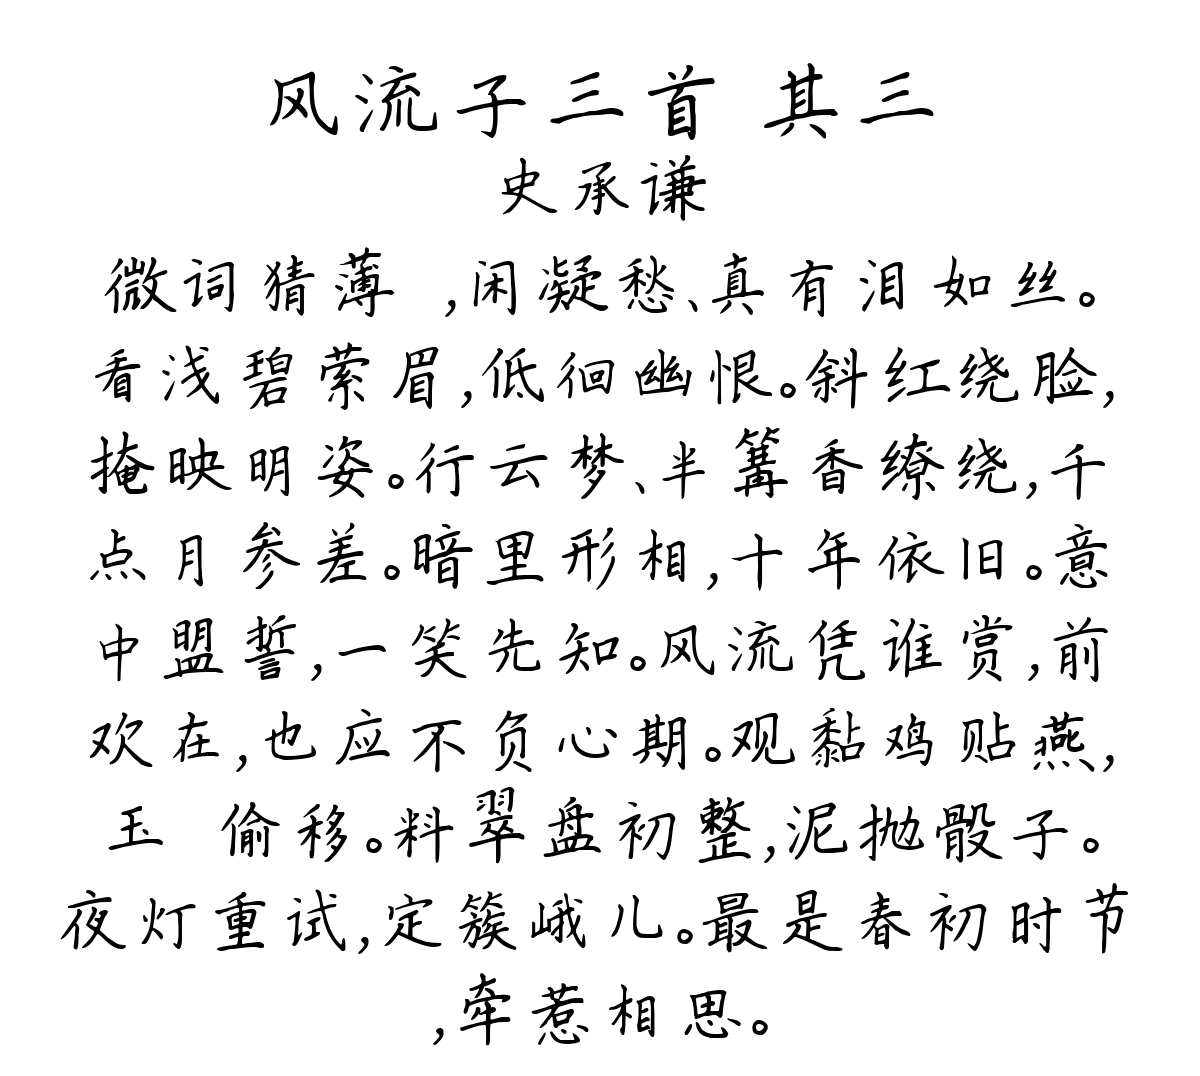 风流子三首 其三
史承谦
微词猜薄 ,闲凝愁、真有泪如丝。
看浅碧萦眉,低徊幽恨。斜红绕脸,
掩映明姿。行云梦、半篝香缭绕,千
点月参差。暗里形相,十年依旧。意
中盟誓,一笑先知。风流凭谁赏,前
欢在,也应不负心期。观黏鸡贴燕,
玉 偷移。料翠盘初整,泥抛骰子。
夜灯重试,定簇峨儿。最是春初时节
,牵惹相思。